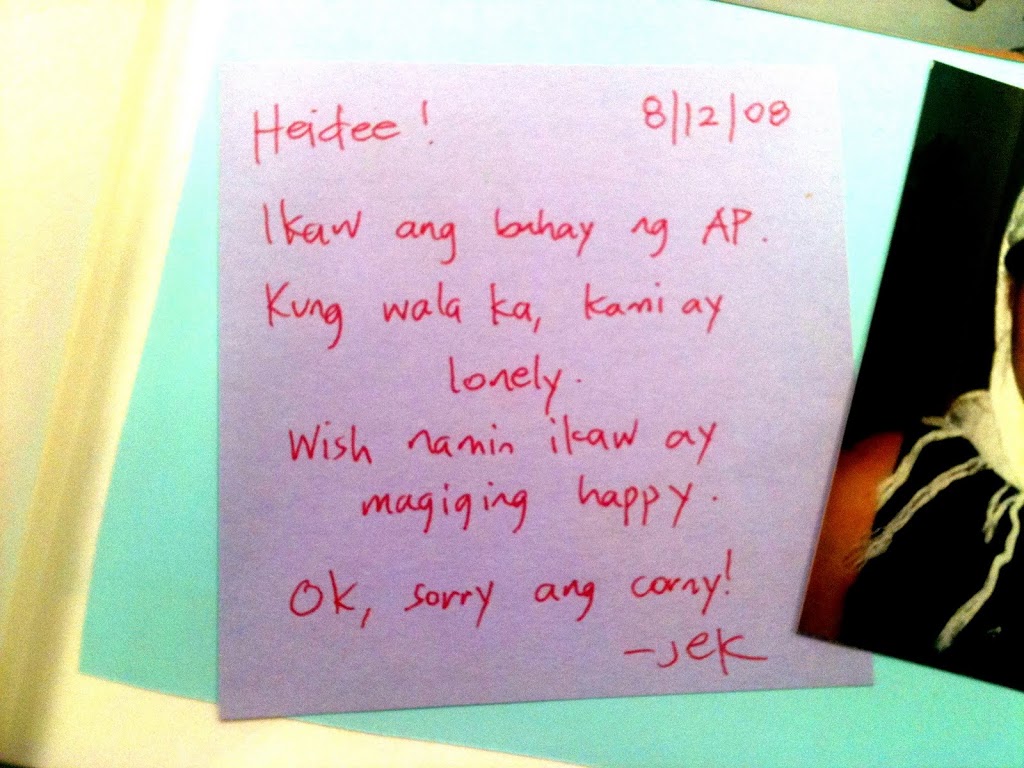 Heidee! 8/12/08
Ikaw ang buhay ng AP.
Kung wala ka, kami ay
lonely.
Wish namin ikaw ay
magiging happy.
OK, sorry ang corny!
-Jek